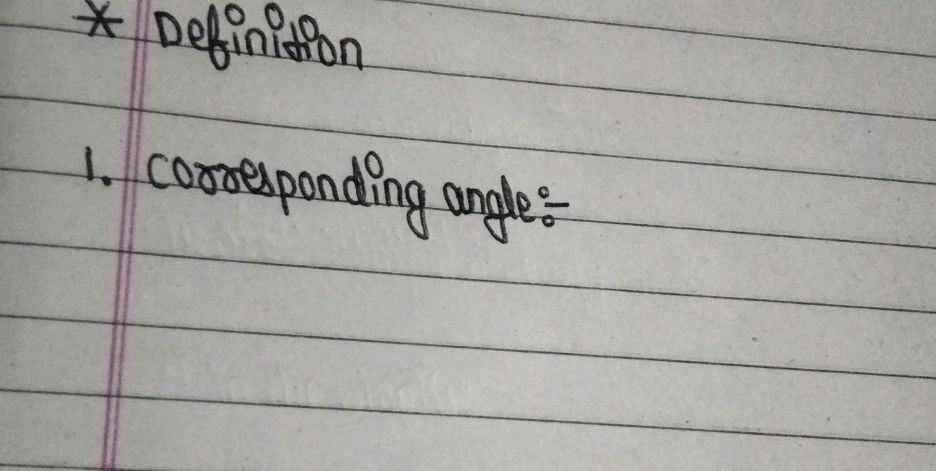 * Definition
1. Corresponding angle:-